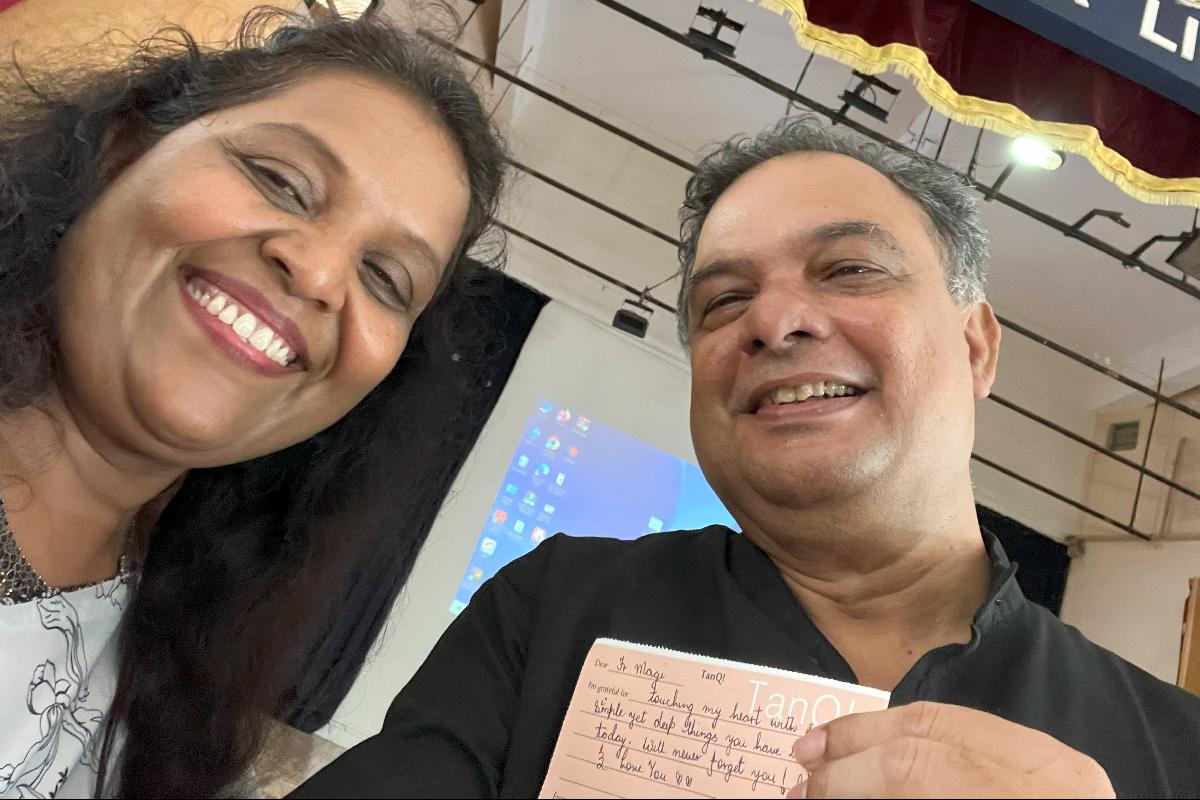 LI
Dear Fr Magi TanQ!
TanQ!
I'm grateful for touching my heart with
simple yet deep things you have
today. Will never forget you!
I love You ♡♡